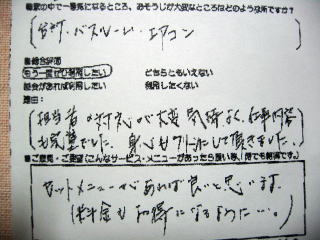 家の中で一番気になるところ、おそうじが大変なところはどのような所ですか?
台所・バスルーム・エアコン
■総合評価
もう一度ぜひ利用したい　どちらともいえない
機会があれば利用したい　利用したくない
理由:
担当者の対応が大変気持よく、仕事内容
も完璧でした。身も心もクリーンにして頂きました。
■ご意見・ご要望(こんなサービス・メニューがあったら良い等、何でも結構です。)
セットメニューがあれば良いと思います。
(料金もお得になるような…。)